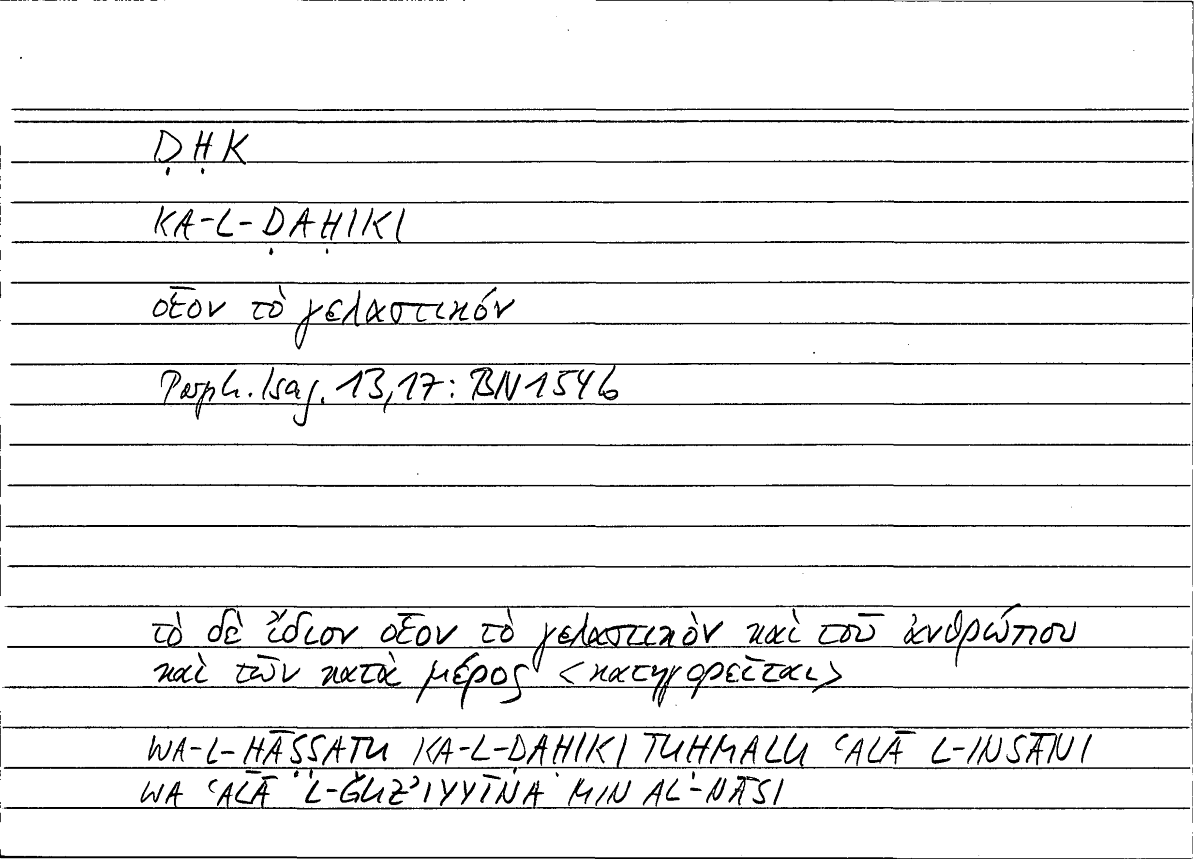 ḌḤK
KA-L-ḌAḤIKI
οἷον τὸ γελαστικόν
Porph. Isag. 13,17: BN154b
τὸ δὲ ἴδιον οἷον τὸ γελαστικὸν καὶ τοῦ ἀνθρώπου
καὶ τῶν κατὰ μέρος <κατηγορεῖται>
WA-L-ḪĀṢṢATU KA-L-ḌAḤIKI TUḤMALU ʿALĀ L-INSĀNI
WA ʿALĀ L-ǦUZʾIYYĪNA MIN AL-NĀSI